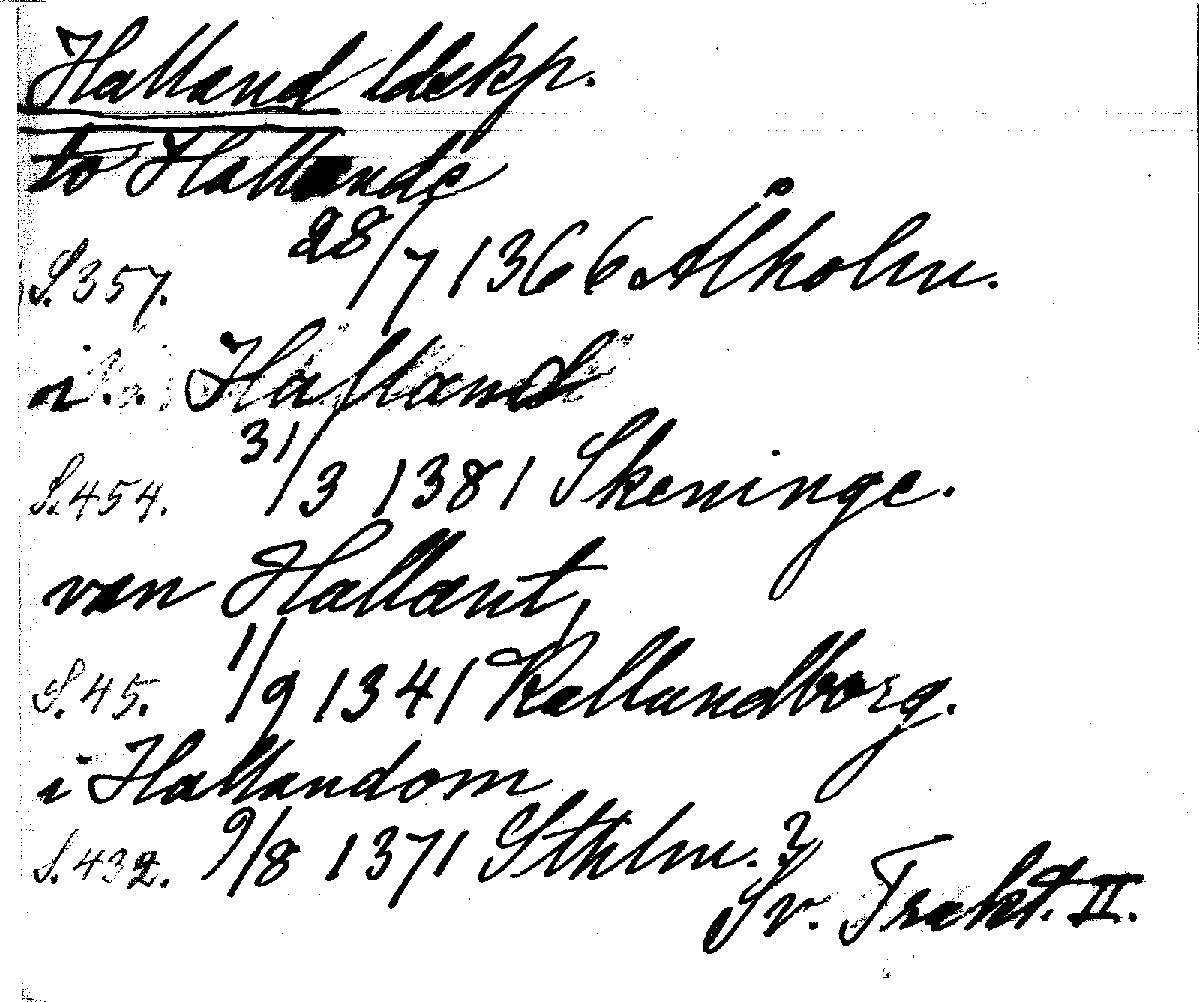 Halland ldskp.
to Hallande
S. 357. 28/7 1366 Ålholm.
i Halland
S. 454. 31/3 1381 Skeninge.
van Hallant,
S. 45. 1/9 1341 Kallundborg.
i Hallandom
S. 432. 9/8 1371 Sthlm. ?
Sv. Trakt. II.